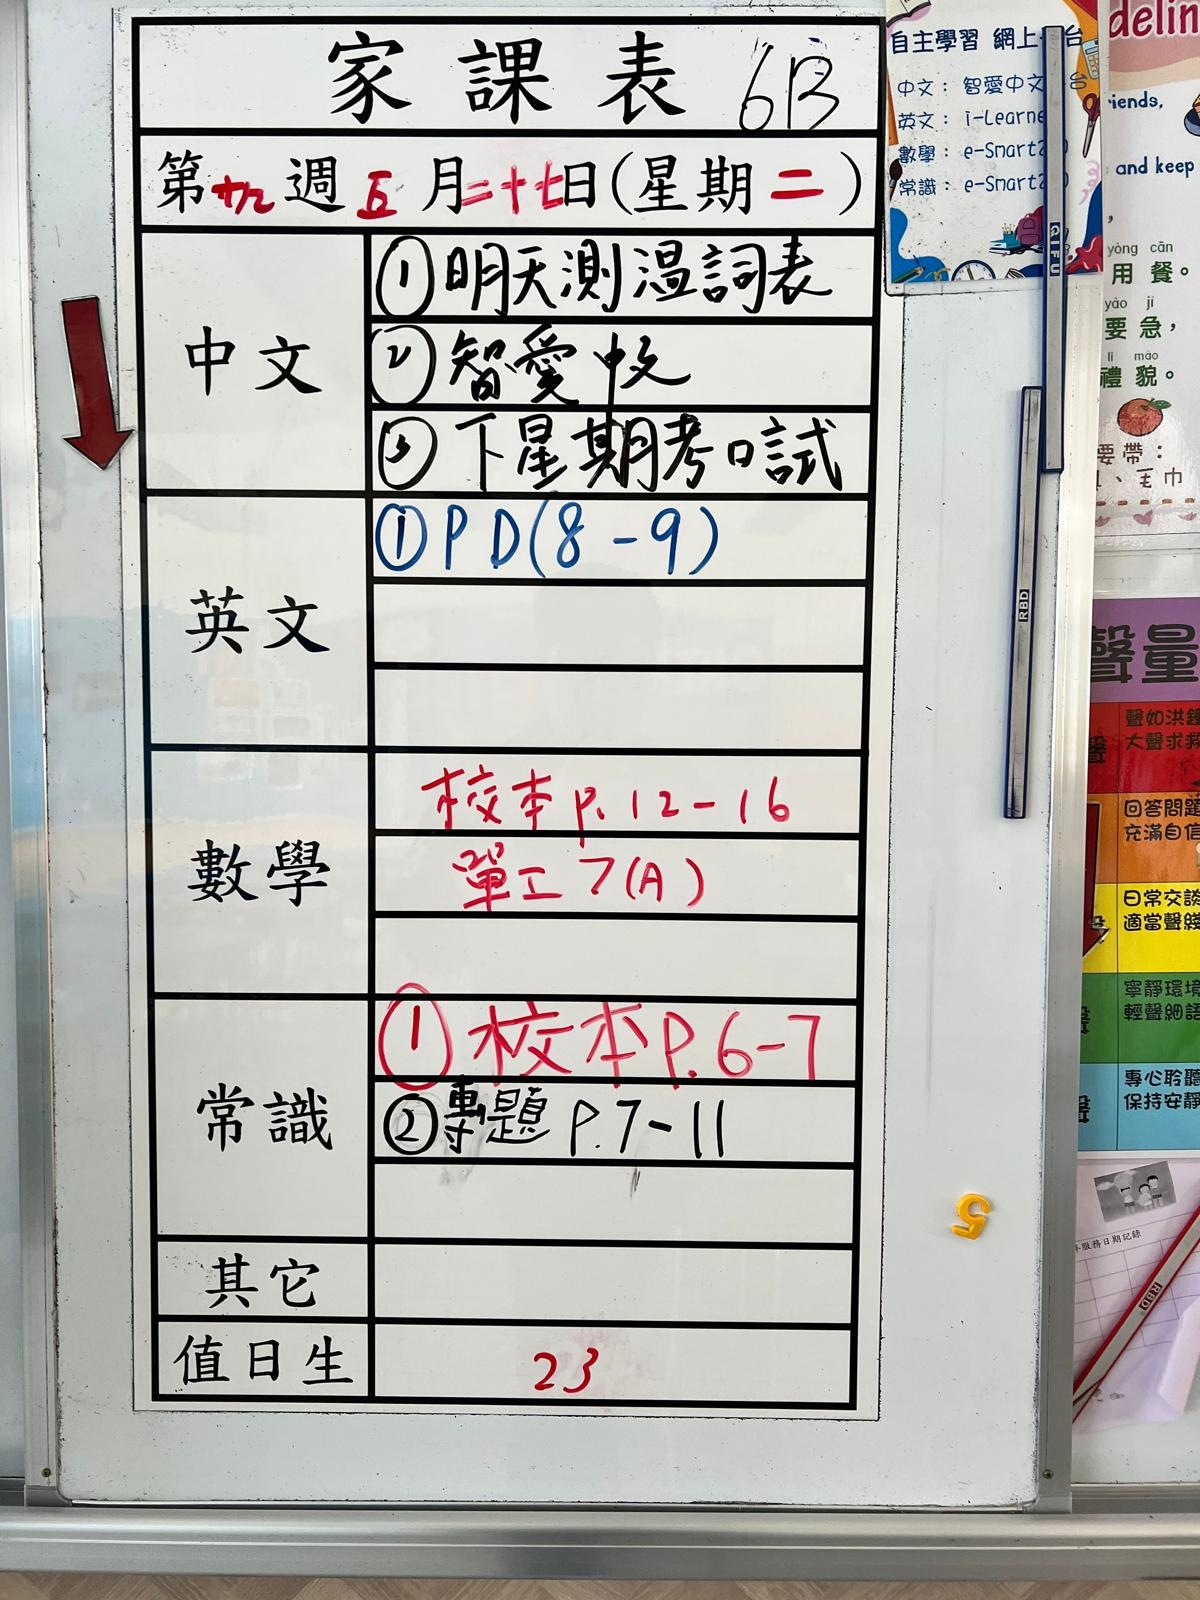 家課表 6B
第十九週五月二十七日(星期二)
中文
①明天測溫詞表
②智愛中文
③下星期考口試
英文
①PD(8-9)
數學
校本p.12-16
單工7(A)
常識
①校本P.6-7
②專題P.7-11
其它
值日生
23
自主學習 網上 台
中文：智愛中文 台
英文：i-Learne
數學：e-Smart2 0
常識：e-Smart2 0
QIFU
RBD
delin
riends,
and keep
yòng cān
用餐。
yào jí
要急，
lǐ mào
禮貌。
要帶：
、毛巾
聲量
聲如洪鐘
大聲求救
回答問題
充滿自信
日常交談
適當聲綫
寧靜環境
輕聲細語
專心聆聽
保持安靜
服務日期記錄
RBD
5